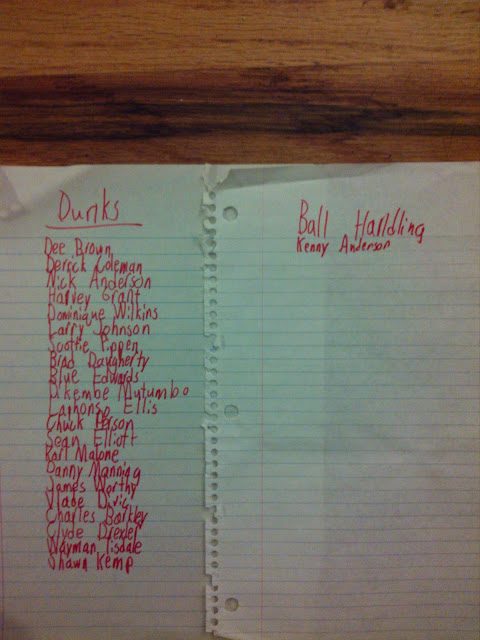 Dunks
Dee Brown
Derrick Coleman
Nick Anderson
Harvey Grant
Dominique Wilkins
Larry Johnson
Scottie Pippen
Brad Daugherty
Blue Edwards
Dikembe Mutumbo
Laphonso Ellis
Chuck Person
Sean Elliott
Karl Malone
Danny Manning
James Worthy
Vlade Divic
Charles Barkley
Clyde Drexler
Wayman Tisdale
Shawn Kemp
Ball Handling
Kenny Anderson